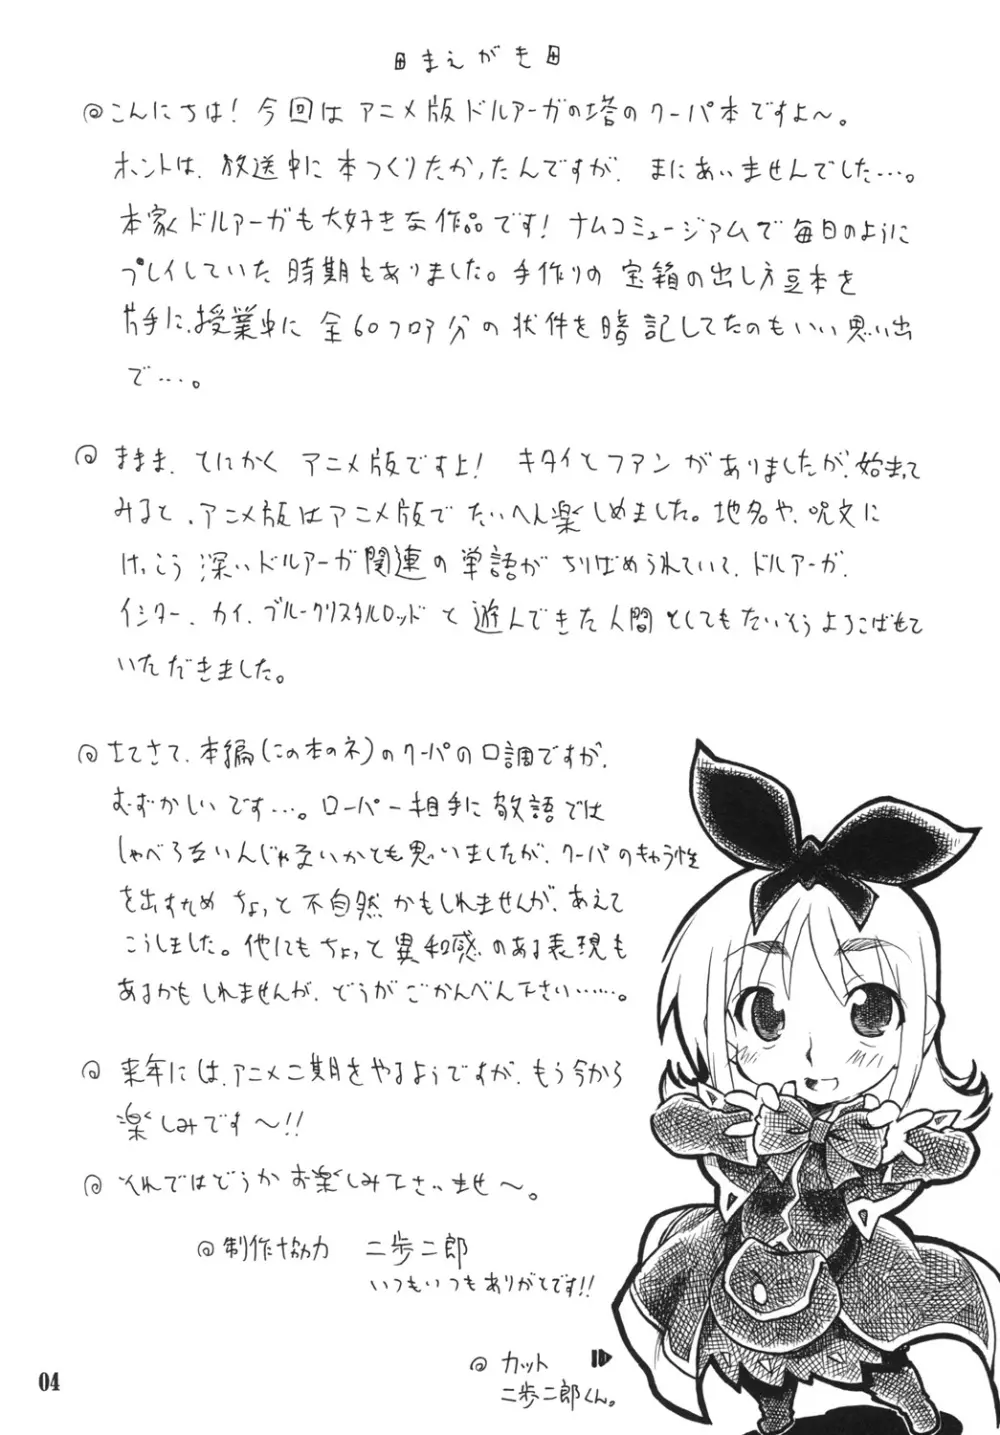 まえがき
◎こんにちは!今回はアニメ版ドルアーガの塔のクーパ本ですよ〜。
ホントは、放送中に本つくりたかったんですが、まにあいませんでした…。
本家ドルアーガも大好きな作品です!ナムコミュージアムで毎日のように
プレイしていた時期もありました。手作りの宝箱の出し方豆本を
片手に、授業中に全60フロア分の状件を暗記してたのもいい思い出
で…。
◎ままま、とにかくアニメ版ですよ!キタイとファンがありましたが、始まって
みると、アニメ版はアニメ版でたいへん楽しめました。地名や、呪文に
けっこう深いドルアーガ関連の単語がちりばめられていて、ドルアーガ、
イシター、カイ、ブルークリスタルロッドと遊んできた人間としてもたいそうよろこばせて
いただきました。
◎さてさて、本編(この本のネ)のクーパの口調ですが、
むずかしいです…。ローパー相手に敬語では
しゃべらないんじゃないかとも思いましたが、クーパのキャラ性
を出すため ちょっと不自然かもしれませんが、あえて
こうしました。他にもちょっと異和感のある表現も
あるかもしれませんが、どうかごかんべん下さい……。
◎来年には、アニメ二期をやるようですが、もう今から
楽しみです〜!!
◎それではどうかお楽しみ下さいませ〜。
◎制作協力 二歩二郎
いつもいつもありがとです!!
◎カット
二歩二郎くん。
04